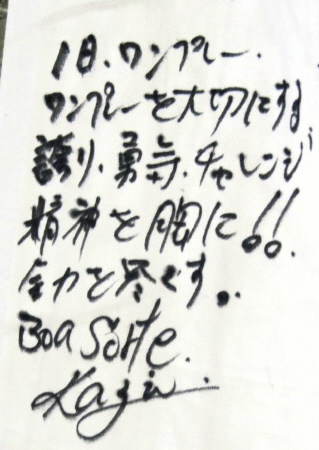 1日、ワンプレー.
ワンプレーを大切にする
誇り、勇気、チャレンジ
精神を胸に!!
全力を尽くす。
Boa Sorte.